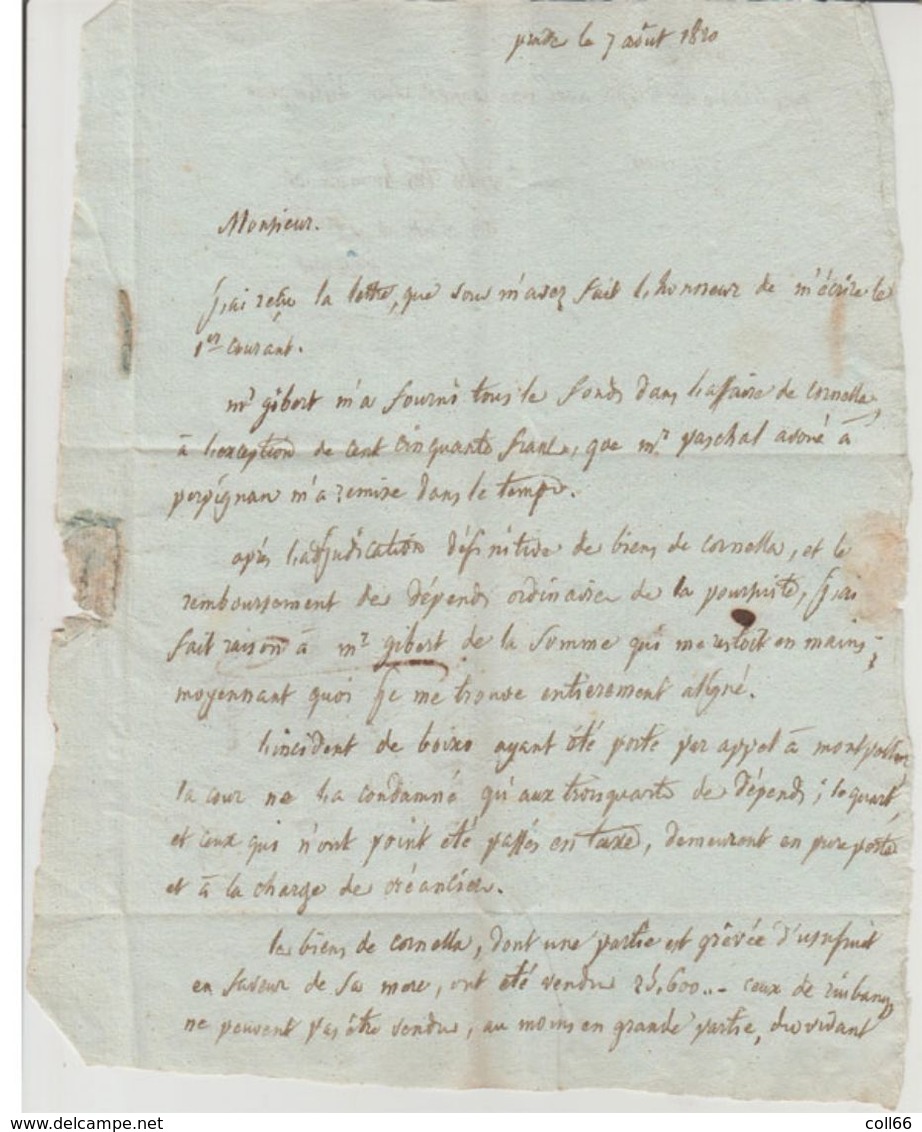 prade le 7 aôut 1820
Monsieur.
j'ai reçu la lettre, que vous m'avez fait l'honneur de m'écrire le
1er courant.
mr gibert m'a fourni tous les fonds dans l'affaire de cornella,
à l'exception de cent cinquante francs, que mr. paschal avoué à
perpignan m'a remise dans le temps.
après l'adjudication définitive des biens de cornella, et le
remboursement des dépends ordinaires de la poursuite, j'ai
fait raison à mr gibert de la somme qui me restoit en mains;
moyennant quoi je me trouve entierement aligné.
l'incident de boixo ayant été porté par appel à montpellier
la cour ne l'a condamné qu'aux trois quarts des dépends; le quart,
et ceux qui n'ont point été passés en taxe, demeurent en pure perte
et à la charge des créanciers.
les biens de cornella, dont une partie est grêvée d'usufruit
en faveur de sa mere, ont été vendus 25,600.. - ceux de
ne peuvent pas être vendus, au moins en grande partie, du vivant
coll66
delcampe.net